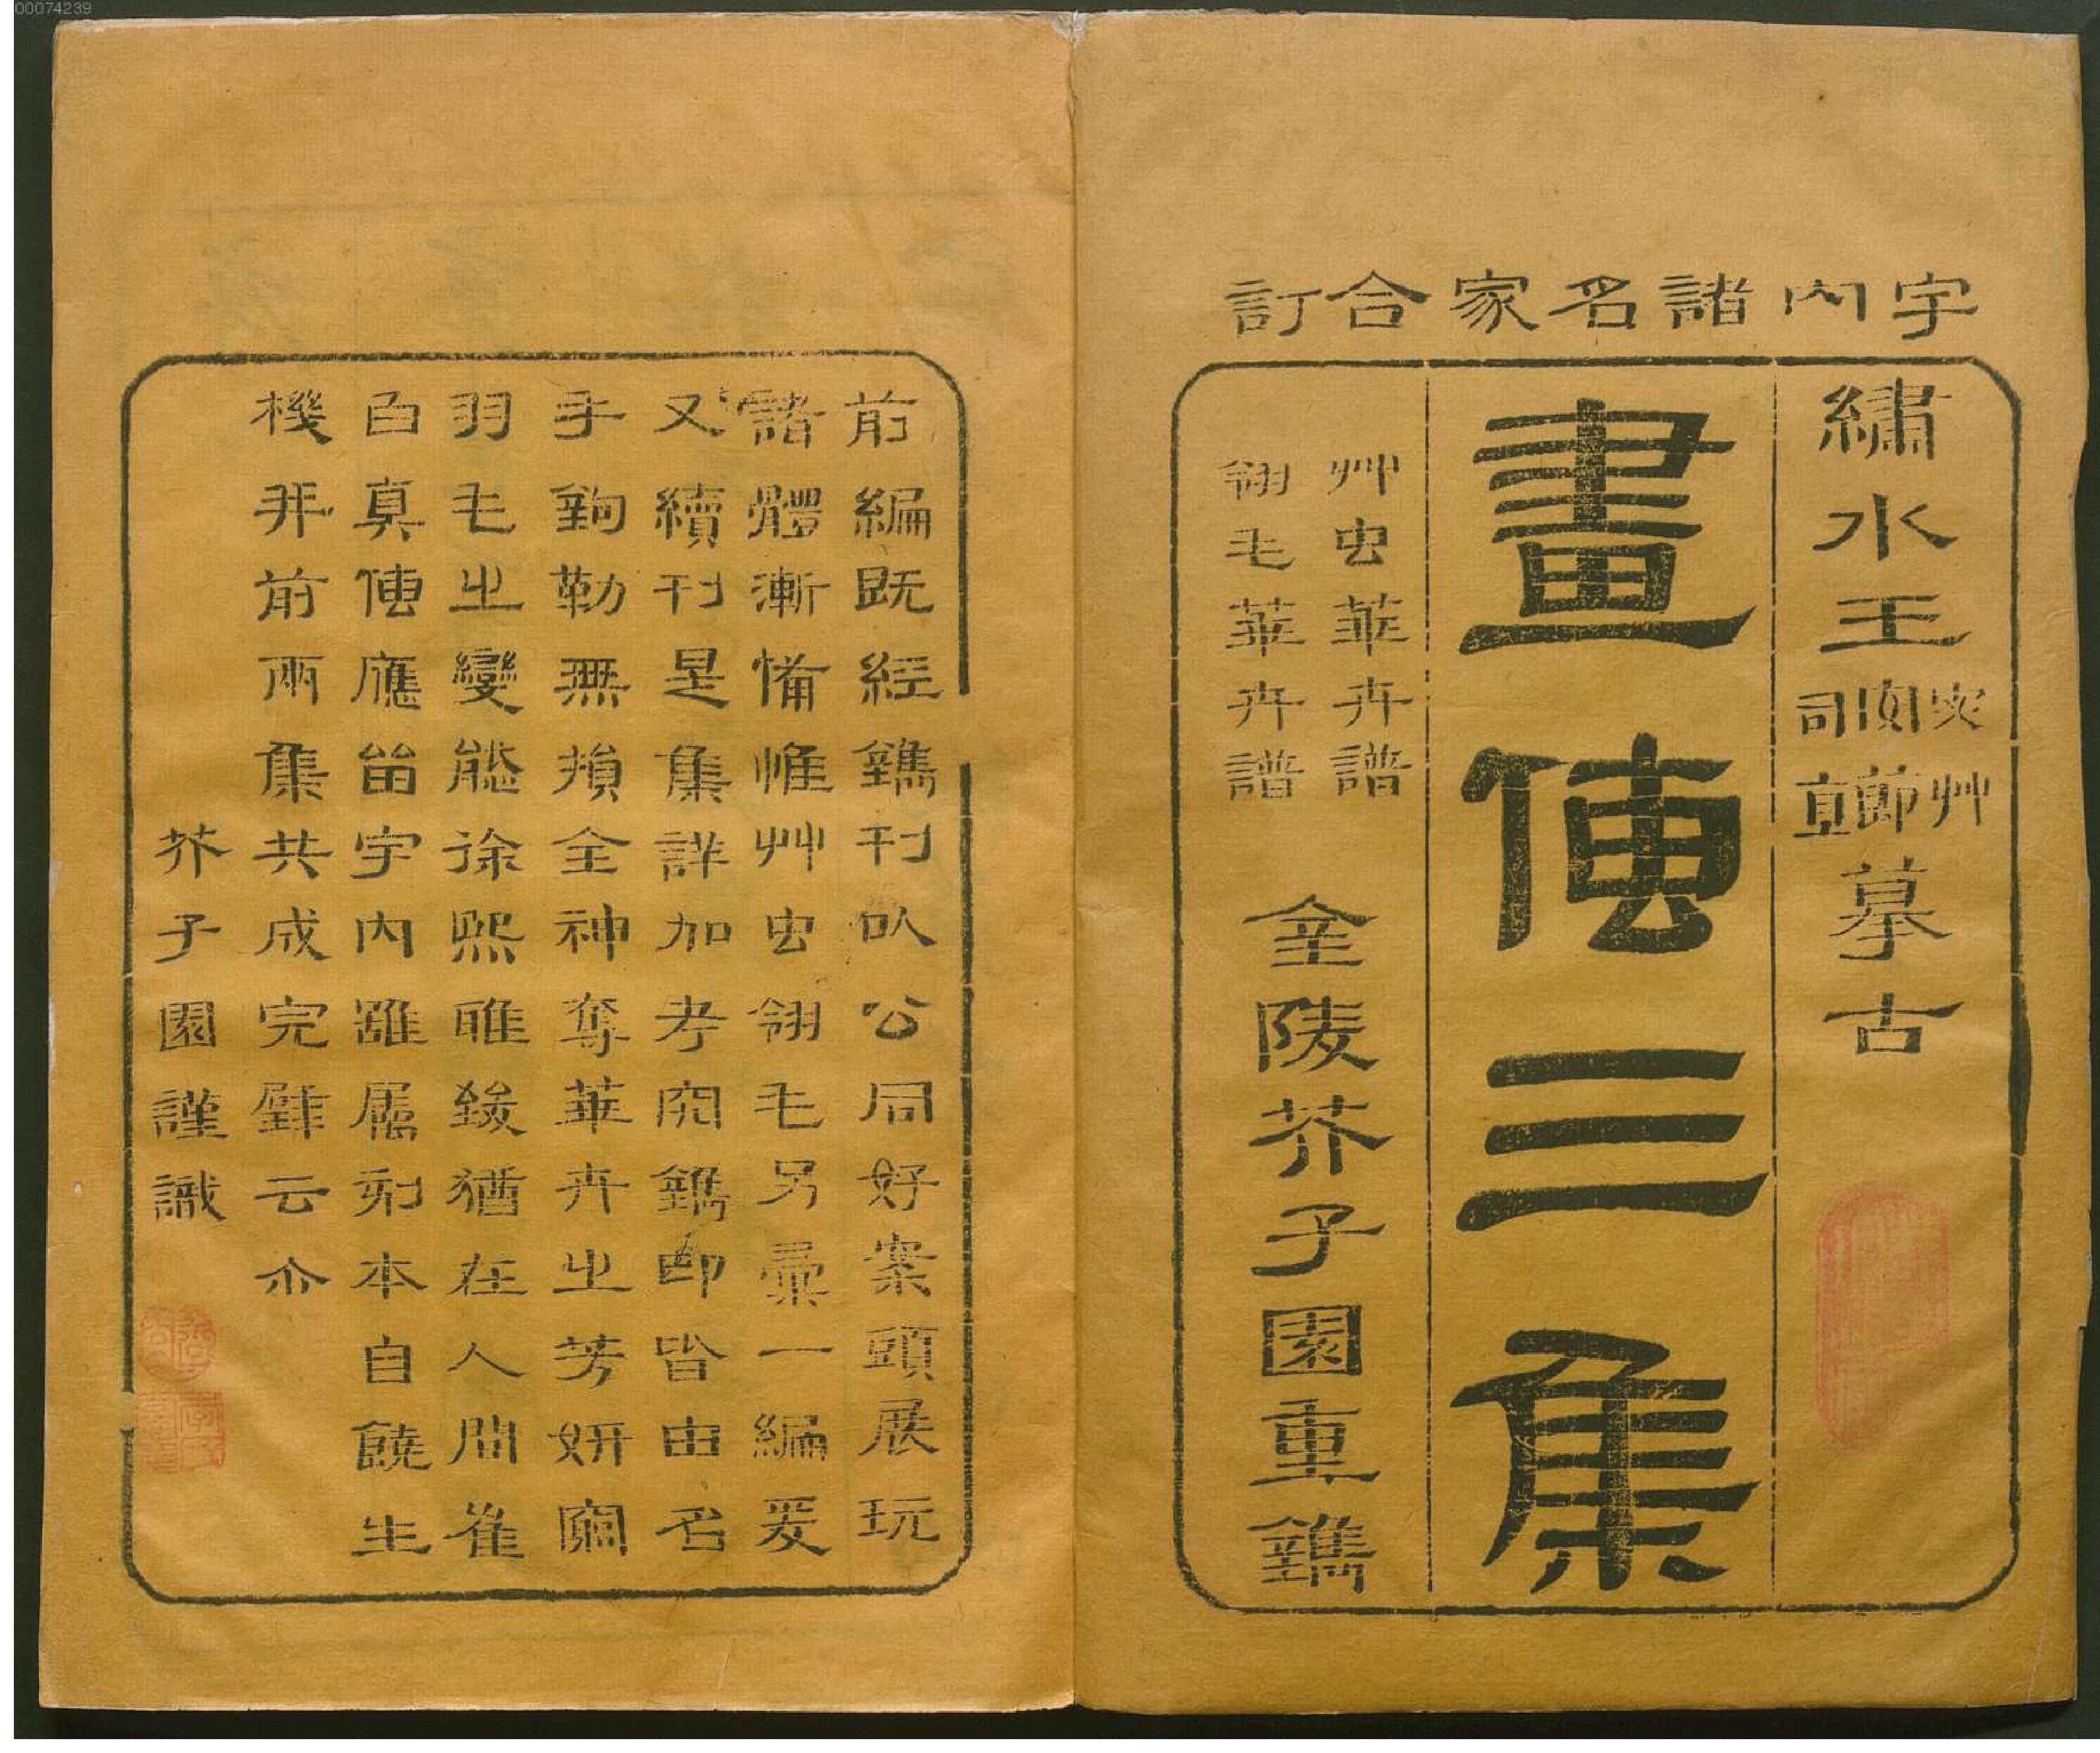 00074239
宇內諸名家合訂
繡水王宓艸安節司直摹古
畫傳三集
艸虫華卉譜
翎毛華卉譜
金陵芥子園重鐫
前編既經鐫刊以公同好案頭展玩
諸體漸備惟艸虫翎毛另彙一編爰
又續刊是集詳加考究鐫印皆由名
手鉤勒無損全神奪華卉之芳妍
羽毛之變態徐熙雅致猶在人間崔
白真傳應留宇內雖屬刻本自饒生
機并前兩集共成完璧云尒
芥子園謹識